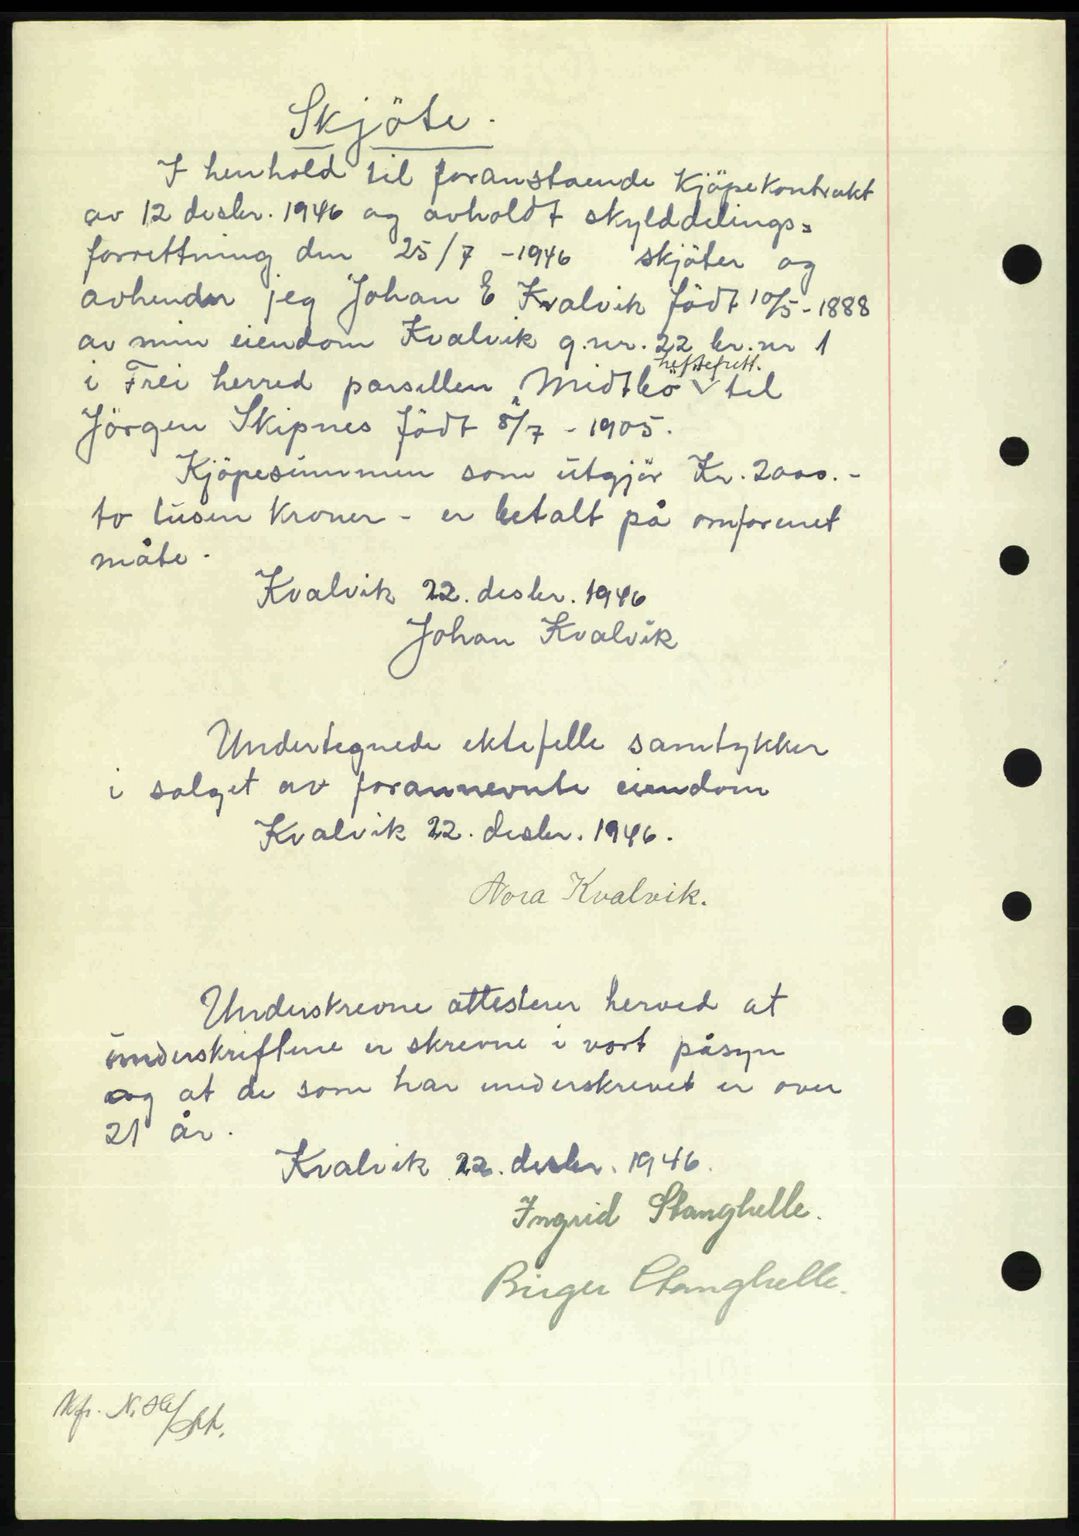 Skjöte.
I henhold til foranstaende Kjöpekontrakt
av 12 desbr. 1946 og avholdt skylddelings=
forrettning den 25/7 -1946 skjöter og
avhender jeg Johan E Kvalvik födt 10/5-1888
av min eiendom Kvalvik g.nr. 22 br.nr 1
heftefritt.
i Frei herred parsellen Midtbö ✓ til
Jörgen Skipnes födt 8/7 - 1905.
Kjöpesummen som utgjör Kr. 2000.-
to tusen Kroner - er betalt på omforenet
måte.
Kvalvik 22. desbr. 1946
Johan Kvalvik
Undertegnede ektefelle samtykker
i salget av forannevnte eiendom
Kvalvik 22. desbr. 1946.
Nora Kvalvik.
Underskrevne attesterer herved at
underskriftene er skrevne i vort påsyn
og at de som har underskrevet er over
21 år.
Kvalvik 22. desbr. 1946.
Ingrid Stanghelle.
Birger Stanghelle.